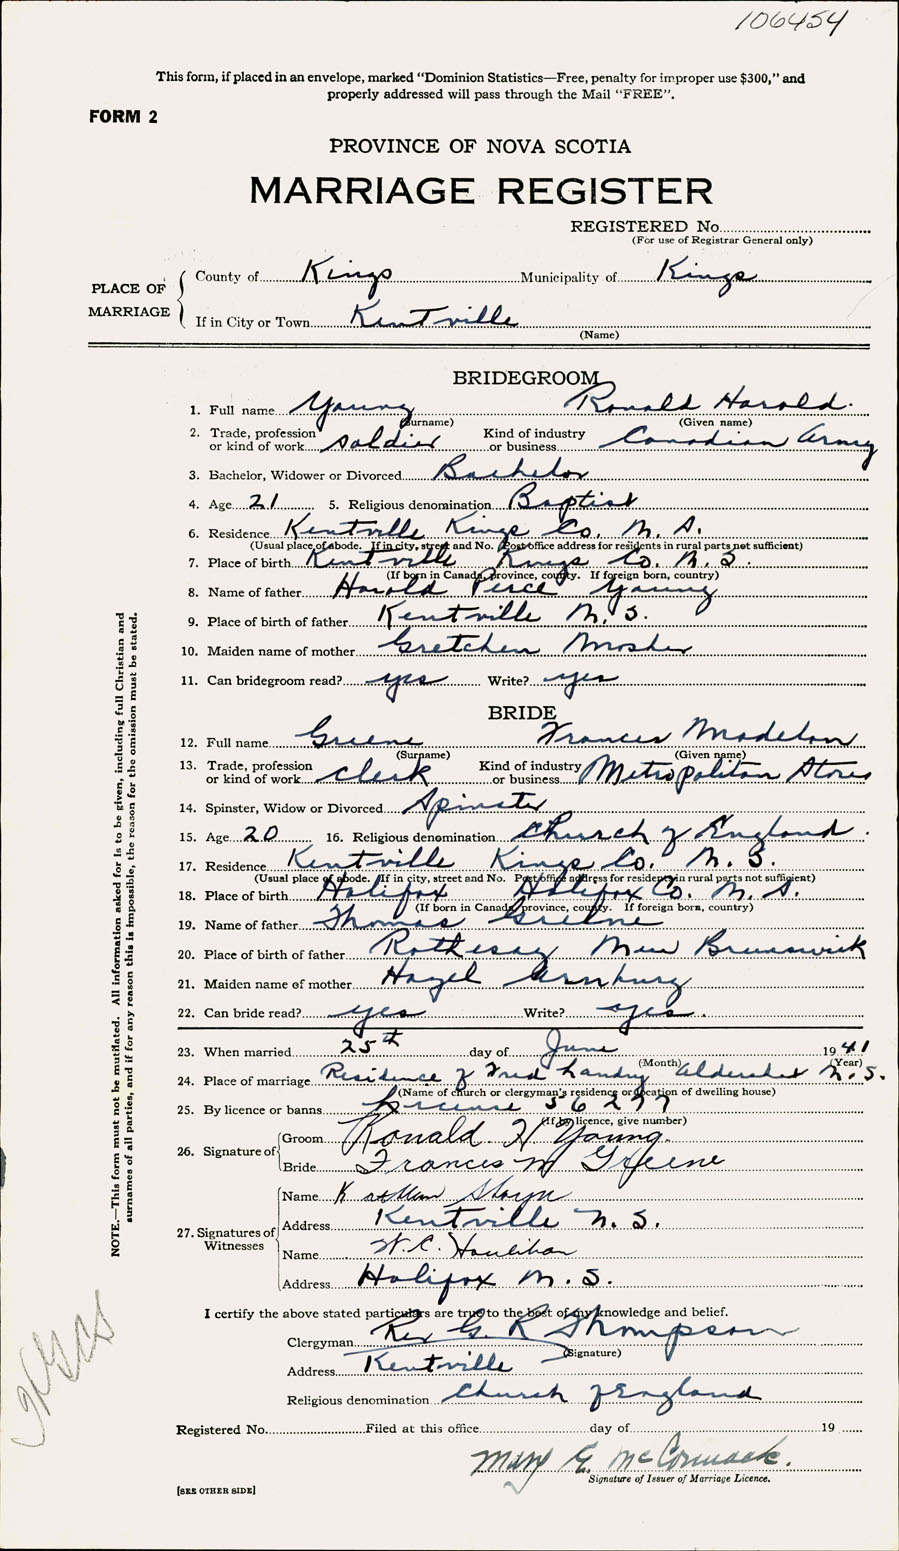 106454
This form, if placed in an envelope, marked "Dominion Statistics—Free, penalty for improper use $300," and
properly addressed will pass through the Mail "FREE".
FORM 2
PROVINCE OF NOVA SCOTIA
MARRIAGE REGISTER
REGISTERED No.
(For use of Registrar General only)
PLACE OF MARRIAGE
County of Kings Municipality of Kings
If in City or Town Kentville
(Name)
BRIDEGROOM
1. Full name Young Ronald Harold.
(Surname) (Given name)
2. Trade, profession or kind of work soldier Kind of industry or business Canadian Army
3. Bachelor, Widower or Divorced Bachelor
4. Age 21 5. Religious denomination Baptist
6. Residence Kentville Kings Co. N. S.
(Usual place of abode. If in city, street and No. Post office address for residents in rural parts not sufficient)
7. Place of birth Kentville Kings Co. N. S.
(If born in Canada, province, county. If foreign born, country)
8. Name of father Harold Perce Young
9. Place of birth of father Kentville N. S.
10. Maiden name of mother Gretchen Mosher
11. Can bridegroom read? yes Write? yes
BRIDE
12. Full name Greene Frances Madelon
(Surname) (Given name)
13. Trade, profession or kind of work clerk Kind of industry or business Metropolitan Stores
14. Spinster, Widow or Divorced Spinster
15. Age 20 16. Religious denomination Church of England.
17. Residence Kentville Kings Co. N. S.
(Usual place of abode. If in city, street and No. Post office address for residents in rural parts not sufficient)
18. Place of birth Halifax Halifax Co. N. S.
(If born in Canada, province, county. If foreign born, country)
19. Name of father Thomas Greene
20. Place of birth of father Rothesay New Brunswick
21. Maiden name of mother Hazel
22. Can bride read? yes Write? yes.
23. When married 25th day of June 1941
(Month) (Year)
24. Place of marriage Residence of Fred Landry Aldershot N. S.
(Name of church or clergyman's residence or location of dwelling house)
25. By licence or banns License 56277
(If by licence, give number)
26. Signature of
Groom Ronald H Young.
Bride Frances M Greene
27. Signatures of Witnesses
Name
Address Kentville N. S.
Name W. C. Houlihan
Address Halifax N. S.
I certify the above stated particulars are true to the best of my knowledge and belief.
Clergyman Rev G. R Thompson
(Signature)
Address Kentville
Religious denomination Church of England
Registered No. Filed at this office day of 19
Mary E. McCormack.
Signature of Issuer of Marriage Licence.
[SEE OTHER SIDE]
NOTE.—This form must not be mutilated. All information asked for is to be given, including full Christian and
surnames of all parties, and if for any reason this is impossible, the reason for the omission must be stated.